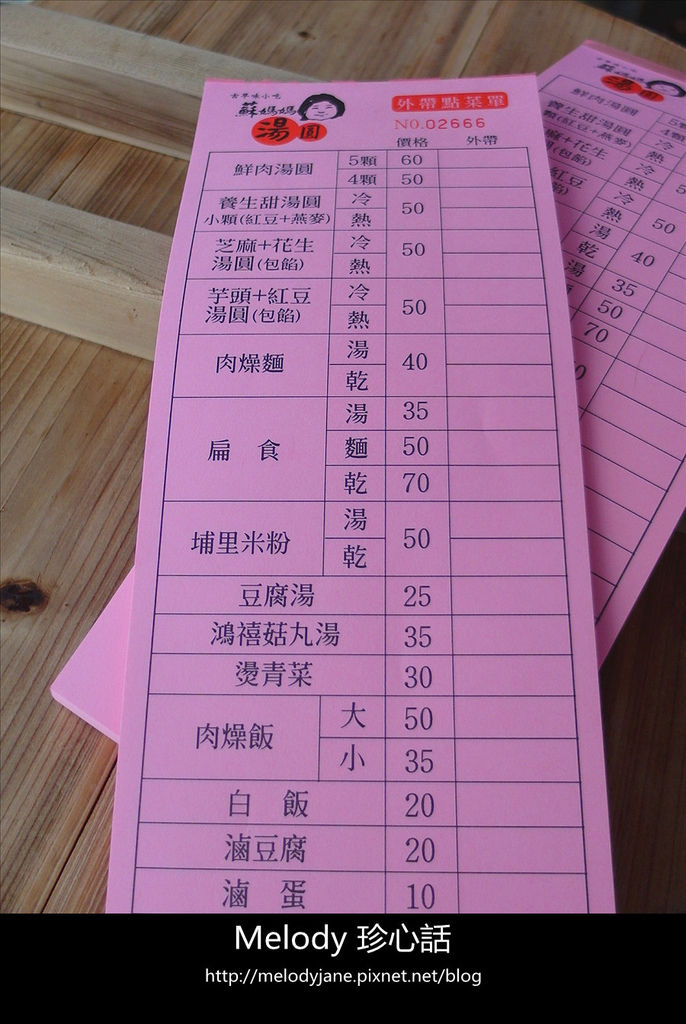 古早味小吃
蘇媽媽
湯圓
外帶點菜單
NO.02666
價格 外帶
鮮肉湯圓 5顆 60
4顆 50
養生甜湯圓
小顆(紅豆+燕麥) 冷 熱 50
芝麻+花生
湯圓(包餡) 冷 熱 50
芋頭+紅豆
湯圓(包餡) 冷 熱 50
肉燥麵 湯 乾 40
扁食 湯 35
麵 50
乾 70
埔里米粉 湯 乾 50
豆腐湯 25
鴻禧菇丸湯 35
燙青菜 30
肉燥飯 大 50
小 35
白飯 20
滷豆腐 20
滷蛋 10
湯圓
鮮肉湯圓
養生甜湯圓 冷
顆(紅豆+燕麥) 熱
麻+花生 冷
(包餡) 熱
紅豆 冷
餡) 熱 50
湯
乾 40
湯 35
50
70
Melody 珍心話
http://melodyjane.pixnet.net/blog